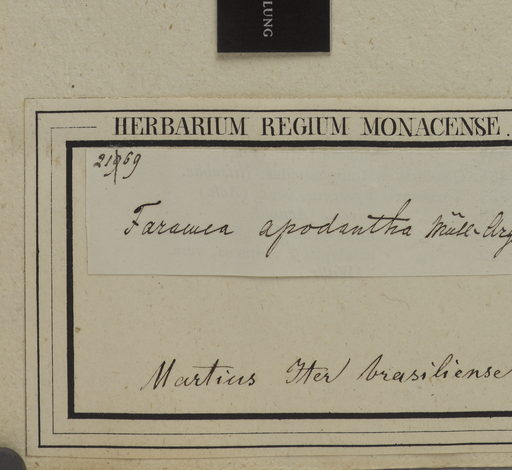 LUNG
HERBARIUM REGIUM MONACENSE.
Faramea apodantha Müll-Arg
Martius Iter brasiliense